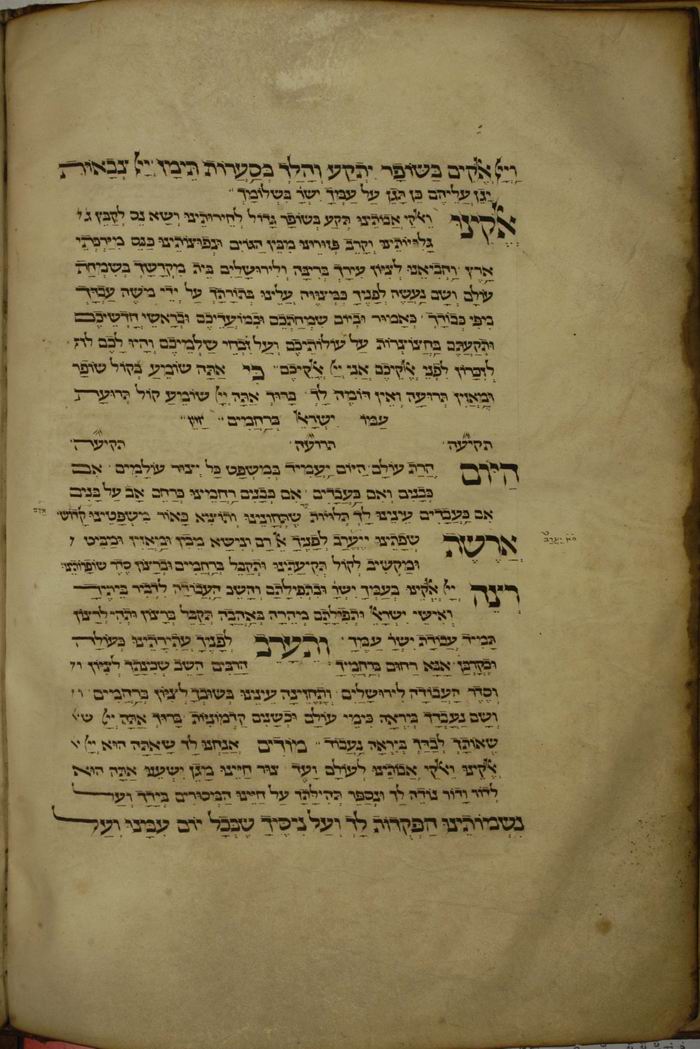 וַייָ אֱלֹקִים בַּשּׁוֹפָר יִתְקָע וְהָלַךְ בְּסַעֲרוֹת תֵּימָן יְיָ צְבָאוֹת
יָגֵן עֲלֵיהֶם כֵּן תָּגֵן עַל עַמְּךָ יִשְׂרָ בִּשְׁלוֹמֶךָ
אֱלֹקֵינוּ וֵאלֹקֵי אֲבוֹתֵינוּ תְּקַע בְּשׁוֹפָר גָּדוֹל לְחֵירוּתֵינוּ וְשָׂא נֵס לְקַבֵּץ
גָּלֻיּוֹתֵינוּ וְקָרֵב פְּזוּרֵינוּ מִבֵּין הַגּוֹיִם וּנְפוּצוֹתֵינוּ כַּנֵּס מִיַּרְכְּתֵי
אָרֶץ וַהֲבִיאֵנוּ לְצִיּוֹן עִירְךָ בְּרִינָּה וְלִירוּשָׁלַיִם בֵּית מִקְדָּשְׁךָ בְּשִׂמְחַת
עוֹלָם וְשָׁם נַעֲשֶׂה לְפָנֶיךָ כְּמִצְוָּה עָלֵינוּ בְּתוֹרָתְךָ עַל יְדֵי מֹשֶׁה עַבְדֶּךָ
מִפִּי כְבוֹדֶךָ כָּאָמוּר וּבְיוֹם שִׂמְחַתְכֶם וּבְמוֹעֲדֵיכֶם וּבְרָאשֵׁי חָדְשֵׁיכֶם
וּתְקַעְתֶּם בַּחֲצוֹצְרוֹת עַל עוֹלוֹתֵיכֶם וְעַל זִבְחֵי שַׁלְמֵיכֶם וְהָיוּ לָכֶם
לְזִכָּרוֹן לִפְנֵי אֱלֹקֵיכֶם אֲנִי יְיָ אֱלֹקֵיכֶם כִּי אַתָּה שׁוֹמֵעַ בְּקוֹל שׁוֹפָר
וּמַאֲזִין תְּרוּעָה וְאֵין דּוֹמֶה לָךְ בָּרוּךְ אַתָּה יְיָ שׁוֹמֵעַ קוֹל תְּרוּעַת
עַמּוֹ יִשְׂרָאֵ בְּרַחֲמִים
תקיעה תרועה תקיעה
הַיּוֹם הֲרַת עוֹלָם הַיּוֹם יַעֲמִיד בַּמִּשְׁפָּט כָּל יְצוּר עוֹלָמִים אִם
כְּבָנִים וְאִם כַּעֲבָדִים אִם כְּבָנִים רַחֲמֵינוּ כְּרַחֵם אָב עַל בָּנִים
אִם כַּעֲבָדִים עֵינֵינוּ לְךָ תְלוּיוֹת שֶׁתְּחוֹנֵינוּ וְתוֹצִיא כָאוֹר מִשְׁפָּטֵינוּ קָדוֹשׁ
אֲרֶשֶׁת שְׂפָתֵינוּ יֶעֱרַב לְפָנֶיךָ אֵ רָם וְנִישָּׂא מֵבִין וּמַאֲזִין וּמַבִּיט
וּמַקְשִׁיב לְקוֹל תְּקִיעָתֵינוּ וּתְקַבֵּל בְּרַחֲמִים וּבְרָצוֹן סֵדֶר שׁוֹפְרוֹתֵינוּ
רְצֵה יְיָ אֱלֹקֵינוּ בְּעַמְּךָ יִשְׂרָ וּבִתְפִילָּתָם וְהָשֵׁב הָעֲבוֹדָה לִדְבִיר בֵּיתֶךָ
וְאִישֵּׁי יִשְׂרָאֵ וּתְפִילָּתָם מְהֵרָה בְּאַהֲבָה תְקַבֵּל בְּרָצוֹן וּתְהִי לְרָצוֹן
תָּמִיד עֲבוֹדַת יִשְׂרָ עַמֶּךָ וְתֶעֱרַב לְפָנֶיךָ עֲתִירָתֵינוּ כְּעוֹלָה
וּכְקָרְבָּן אָנָּא רַחוּם בְּרַחֲמֶיךָ הָרַבִּים הָשֵׁב שְׁכִינָתְךָ לְצִיּוֹן
וְסֵדֶר הָעֲבוֹדָה לִירוּשָׁלַיִם וְתֶחֱזֶינָה עֵינֵינוּ בְּשׁוּבְךָ לְצִיּוֹן בְּרַחֲמִים
וְשָׁם נַעֲבָדְךָ בְּיִרְאָה כִּימֵי עוֹלָם וּכְשָׁנִים קַדְמוֹנִיּוֹת בָּרוּךְ אַתָּה יְיָ
שֶׁאוֹתְךָ לְבַדְּךָ בְּיִרְאָה נַעֲבוֹד מוֹדִים אֲנַחְנוּ לָךְ שָׁאַתָּה הוּא יְיָ
אֱלֹקֵינוּ וֵאלֹקֵי אֲבוֹתֵינוּ לְעוֹלָם וָעֶד צוּר חַיֵּינוּ מָגֵן יִשְׁעֵנוּ אַתָּה הוּא
לְדוֹר וָדוֹר נוֹדֶה לְךָ וּנְסַפֵּר תְּהִילָּתֶךָ עַל חַיֵּינוּ הַמְּסוּרִים בְּיָדֶךָ וְעַל
נִשְׁמוֹתֵינוּ הַפְּקוּדוֹת לָךְ וְעַל נִיסֶּיךָ שֶׁבְּכָל יוֹם עִמָּנוּ וְעַל